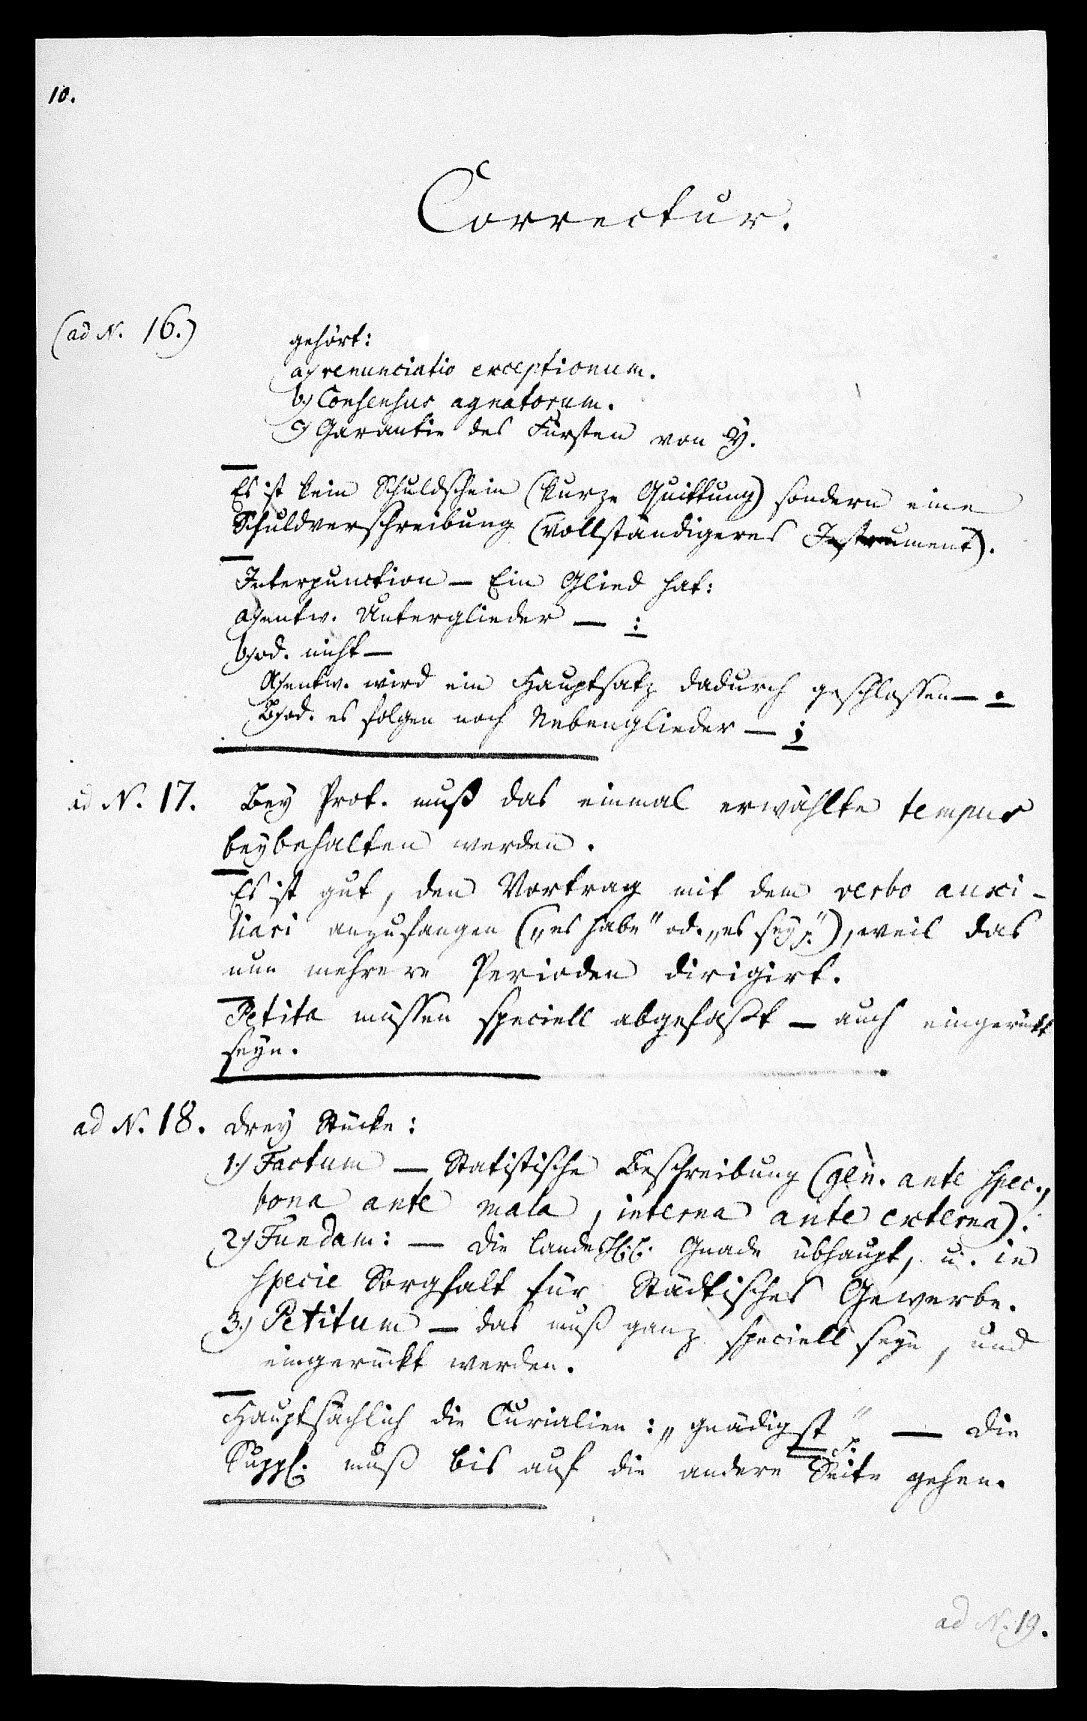 10.
Correctur.
(ad N. 16.)
gehört:
a) renunciatio exceptionum.
b.) Consensus agnatorum.
c) Garantie des Fürsten von Y.
Es ist kein Schuldschein (kurze Quittung) sondern eine
Schuldverschreibung (vollständigeres Instrument).
Interpunction — Ein Glied hat:
a) entw. Unterglieder — :
b) od. nicht —
A) entw. wird ein Hauptsatz dadurch geschlossen — .
B) od. es folgen noch Nebenglieder — ;
ad N. 17. Bey Prot. muß das einmal erwählte tempus
beybehalten werden.
Es ist gut, den Vortrag mit dem verbo auxi-
liari anzufangen („es habe" od. „es sey p."), weil das
nun mehrere Perioden dirigirt.
Petita müssen speciell abgefaßt — auch eingerückt
seyn.
ad N. 18. drey Stücke:
1.) Factum — Statistische Beschreibung (gen. ante spec.,
bona ante mala, interna ante externa).
2.) Fundam: — die Gnade übhaupt, u. in
specie Sorgfalt für Städtisches Gewerbe.
3.) Petitum — das muß ganz speciell seyn, und
eingerückt werden.
Hauptsächlich die Curialien: „gnädigst p." — die
Suppl. muß bis auf die andere Seite gehen.
ad N. 19.